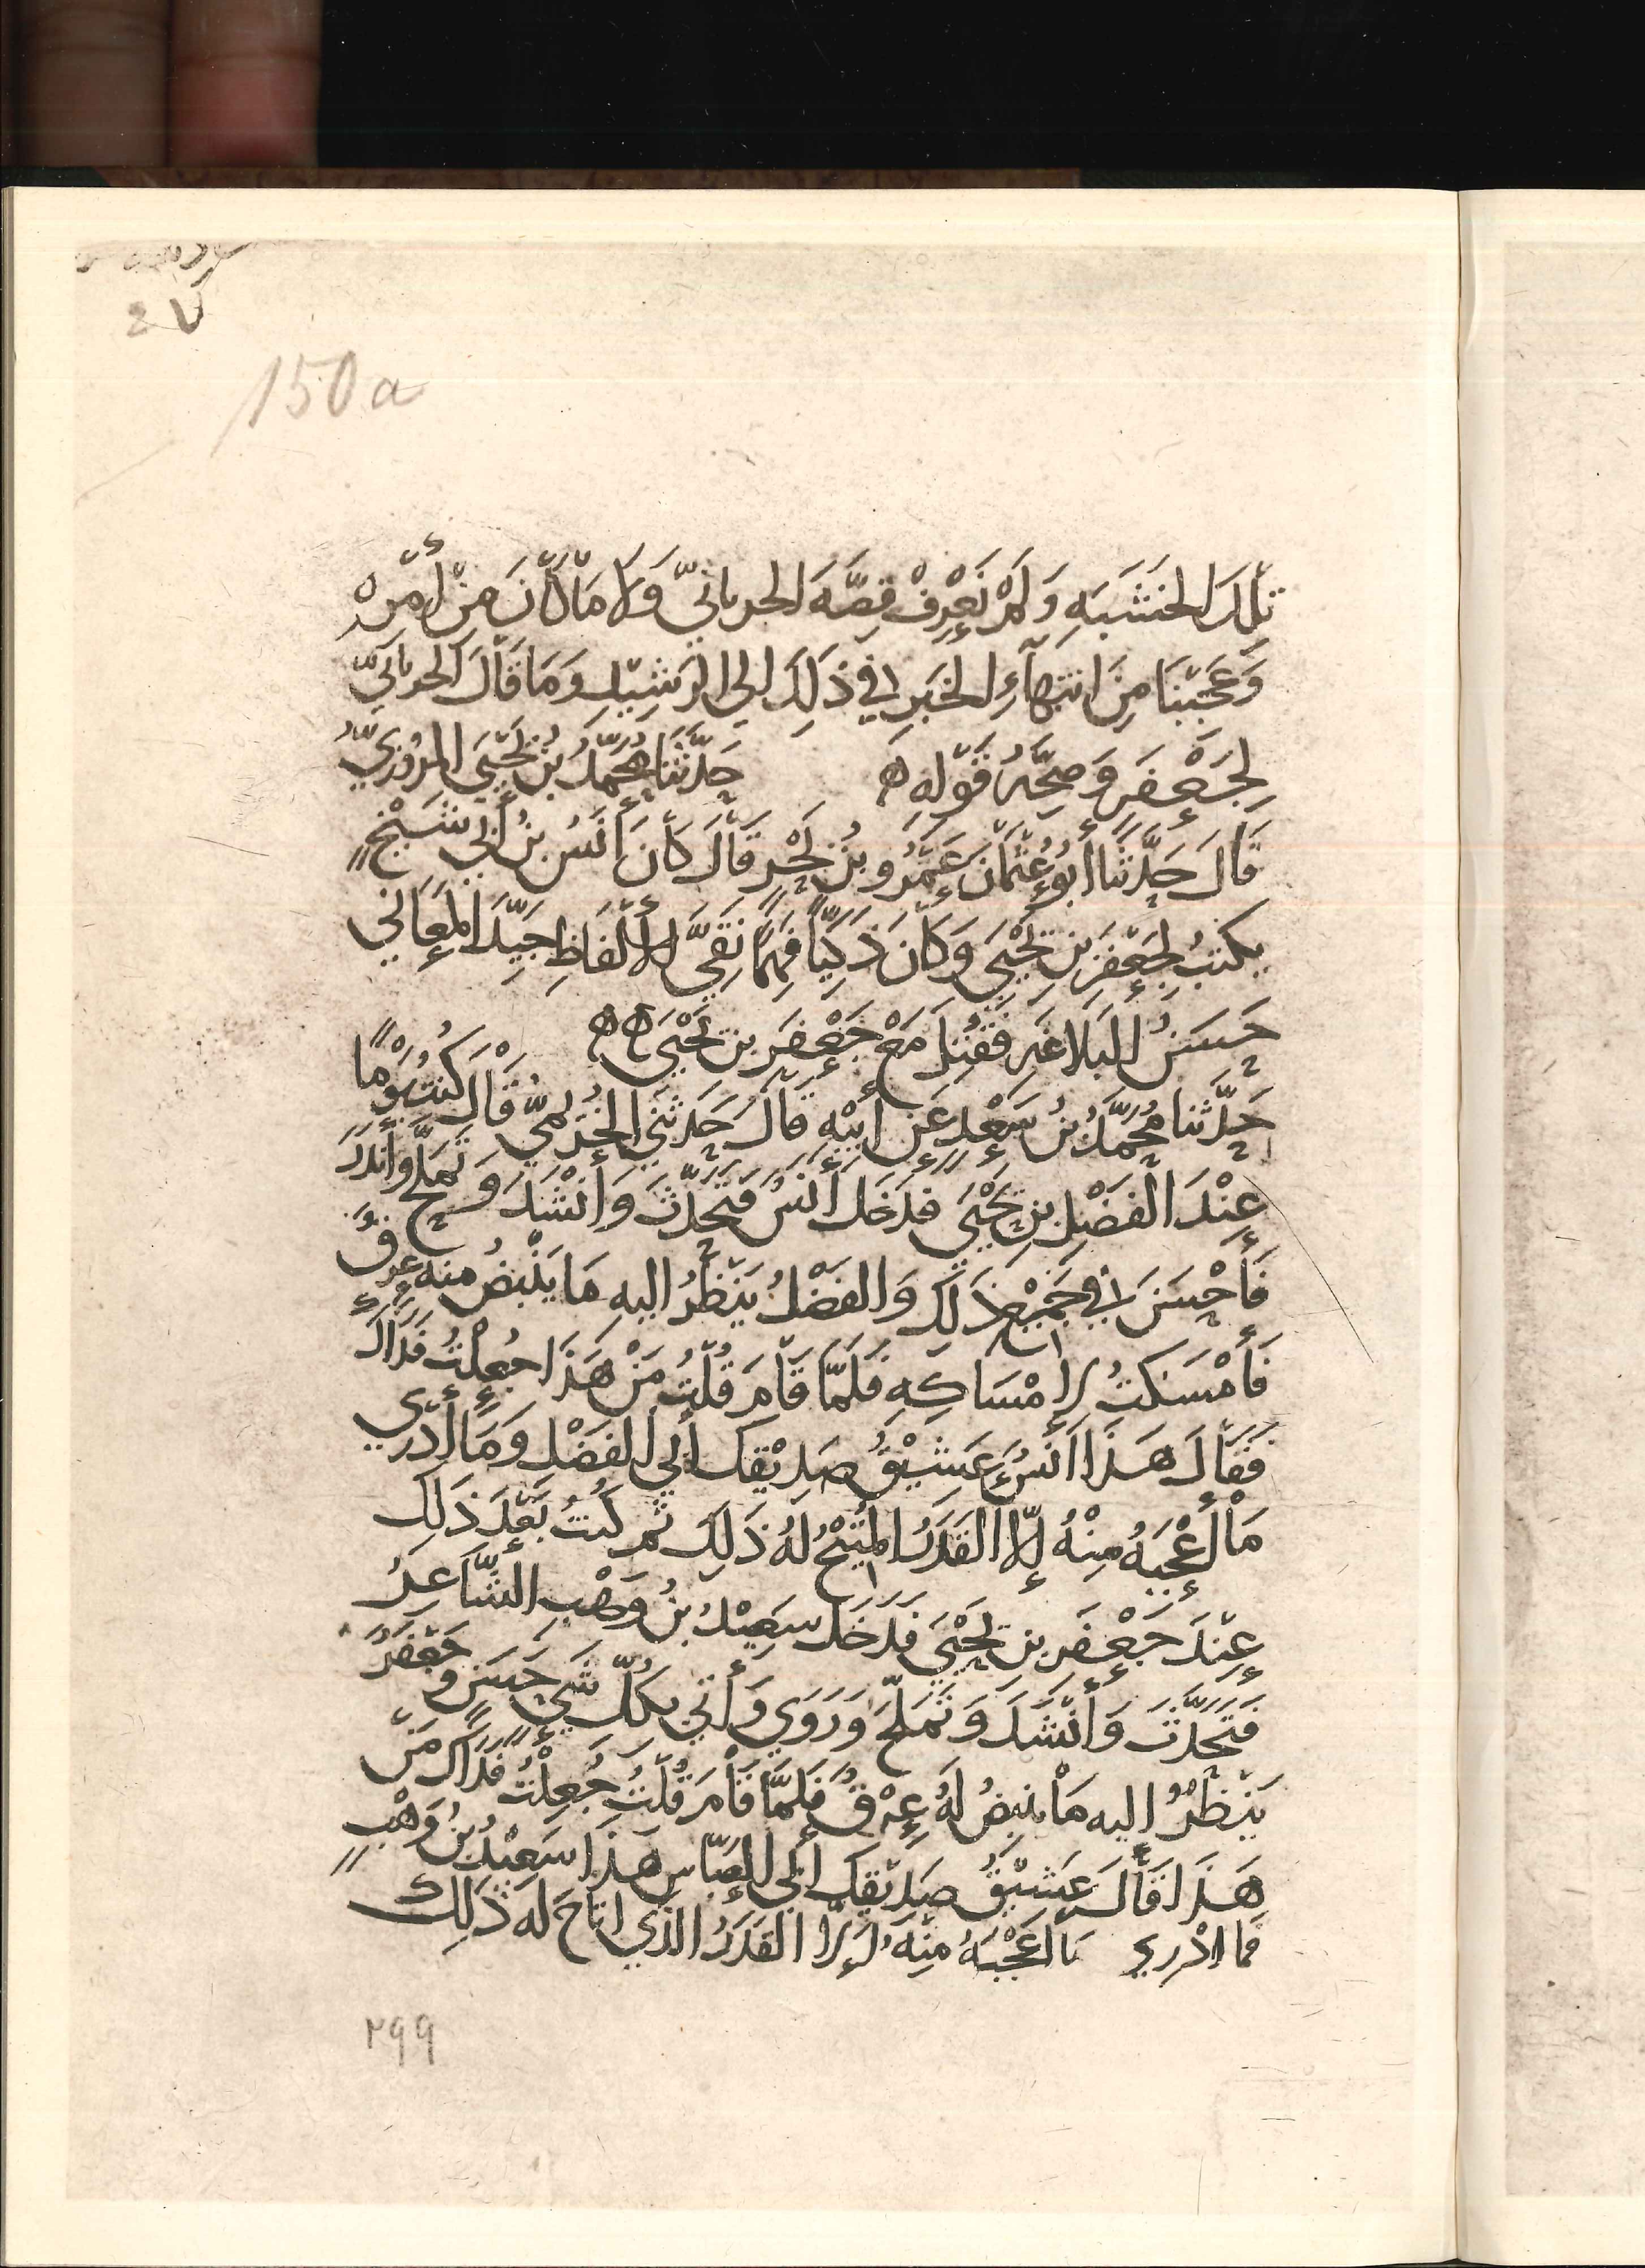 ٤٧
150a
تِلْكَ الخَشَبَهِ وَلَمْ نَعْرِفْ قِصَّهَ الحربانيّ وَلَا مَا كَانَ مِنْ أَمْرِهْ
وَعَجِبْنَا مِنَ انتِهَآءِ الخَبَرِ في ذَلِكَ الى الرَشِيْدِ وَمَا قَالَ الحربانيّ
لِجَعْفَرٍ وَصِحَّهِ قَوْلِهِ ۞ حَدَّثَنَا مُحَمَّدُ بْنُ يَحْيَى المَرْوَزِيُّ
قَالَ حَدَّثَنَا أَبُو عُثْمَانَ عَمْرُو بْنُ بَحْرٍ قَالَ كَانَ أَنَسُ بنُ أَبي شَيْخٍ
يكتبُ لِجَعْفَرِ بنِ يَحْيَى وَكَانَ ذَكِيّاً فَهِماً نَقِيَّ الأَلْفَاظِ جَيِّدَ المَعَاني
حَسَنَ البَلَاغَهِ فَقُتِلَ مَعَ جَعْفَرِ بنِ يَحْيَى ۞۞
حَدَّثَنا مُحَمَّدُ بنُ سَعْدٍ عَن أَبِيْهِ قَالَ حَدَثَنِي الخُرَيْمِيُّ قَالَ كُنتُ يَوْماً
عِنْدَ الفَضْلِ بنِ يَحْيَى فَدَخَلَ أَنَسُ فَتَحَدَّثَ وَأَنْشَدَ وَتَمَلَّحَ وَأَنْدَرَ
فَأَحْسَنَ في جَمِيْعِ ذَلِكَ وَالفَضْلُ يَنْظُرُ اليهِ مَا يَنْبُضُ منه عِرْقٌ
فَأَمْسَكتُ لإِمْسَاكِهِ فَلَمَّا قَامَ قُلْتُ مَنْ هَذَا جُعِلْتُ فَدَاكَ
فَقَالَ هَذَا أَنَسُ عَشِيْقُ صَدِيْقِكَ أبي الفَضْلِ وَمَا أَدْرِي
مَا أَعْجَبَهُ مِنْهُ إلّا القَدَرُ المُتِيْحُ لَهُ ذَلِكَ ثم كُنتُ بَعْدَ ذَلِكَ
عِنْدَ جَعْفَرِ بنِ يَحْيَى فَدَخَلَ سَعِيْدُ بنُ وَهْبِ الشَّاعِرُ
فَتَحَدَّثَ وَأَنْشَدَ وَتَمَلَّحَ وَرَوَى وَأَتى بكلِّ شيءٍ حَسَنٍ وجَعْفَرُ
يَنْظُرُ اليه مَا ينبِضُ لَهُ عِرْقُ فَلَمَّا قَامَ قُلْتُ جُعِلْتُ فَدَاكَ مَنْ
هَذَا قَالَ عَشِيْقُ صَدِيْقِكَ أبي العَبّاسِ هَذَا سَعِيْدُ بنُ وَهْبٍ
فما ادْرِي ما اعْجَبَهُ مِنْهُ إِلّا القَدَرُ الذي اتَاحَ له ذَلِكَ
٢٩٩